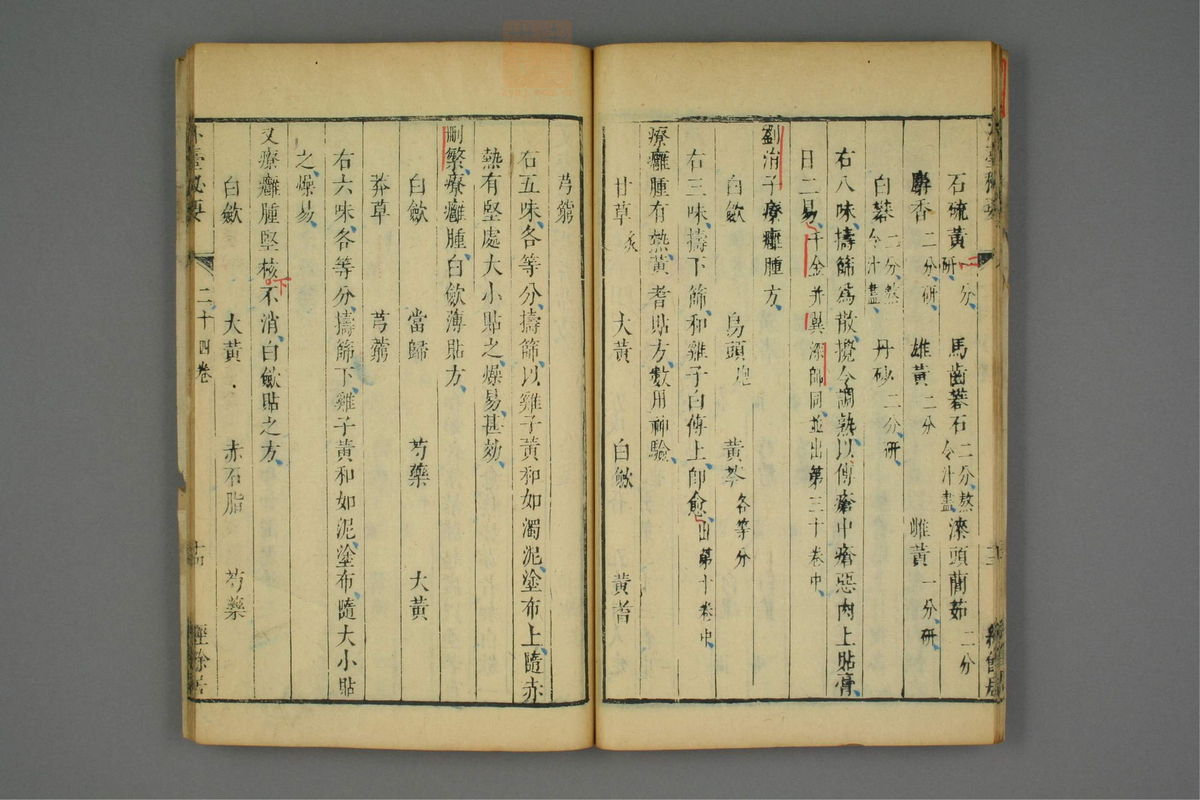 石硫黃一分研 馬齒礬石二分熬令汁盡 漆頭䕡茹二分
麝香二分研 雄黃二分 雌黃一分研
白礬二分熬令汁盡 丹砂二分研
右八味擣篩為散攪令調熟以傅瘡中瘡惡肉上貼膏
日二易千金并翼深師同並出第三十卷中
劉涓子療癰腫方
白歛 烏頭炮 黃芩各等分
右三味擣下篩和雞子白傅上即愈出第十卷中
療癰腫有熱黃耆貼方數用神驗
甘草炙 大黃 白歛 黃耆
芎藭
右五味各等分擣篩以雞子黃和如濁泥塗布上隨赤
熱有堅處大小貼之燥易甚効
刪繁療癰腫白歛薄貼方
白歛 當歸 芍藥 大黃
莽草 芎藭
右六味各等分擣篩下雞子黃和如泥塗布隨大小貼
之燥易
又療癰腫堅核不消白歛貼之方
下
白歛 大黃 赤石脂 芍藥
外臺秘要 二十四卷 十四 經餘居